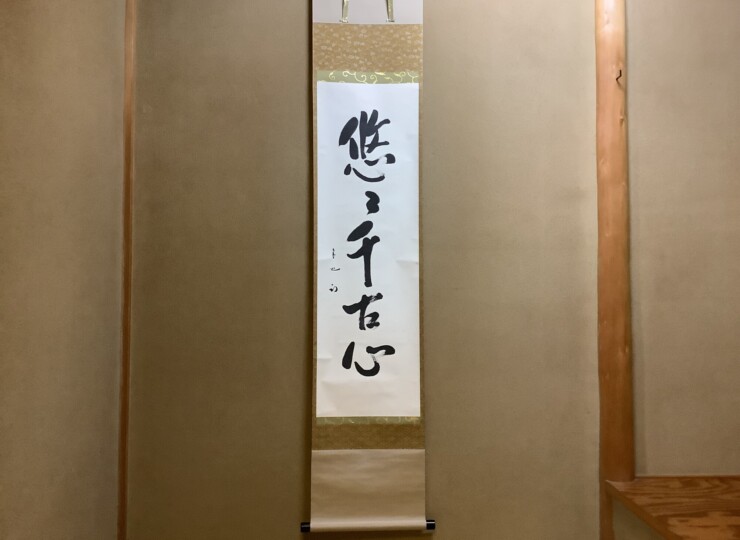 悠々千古心